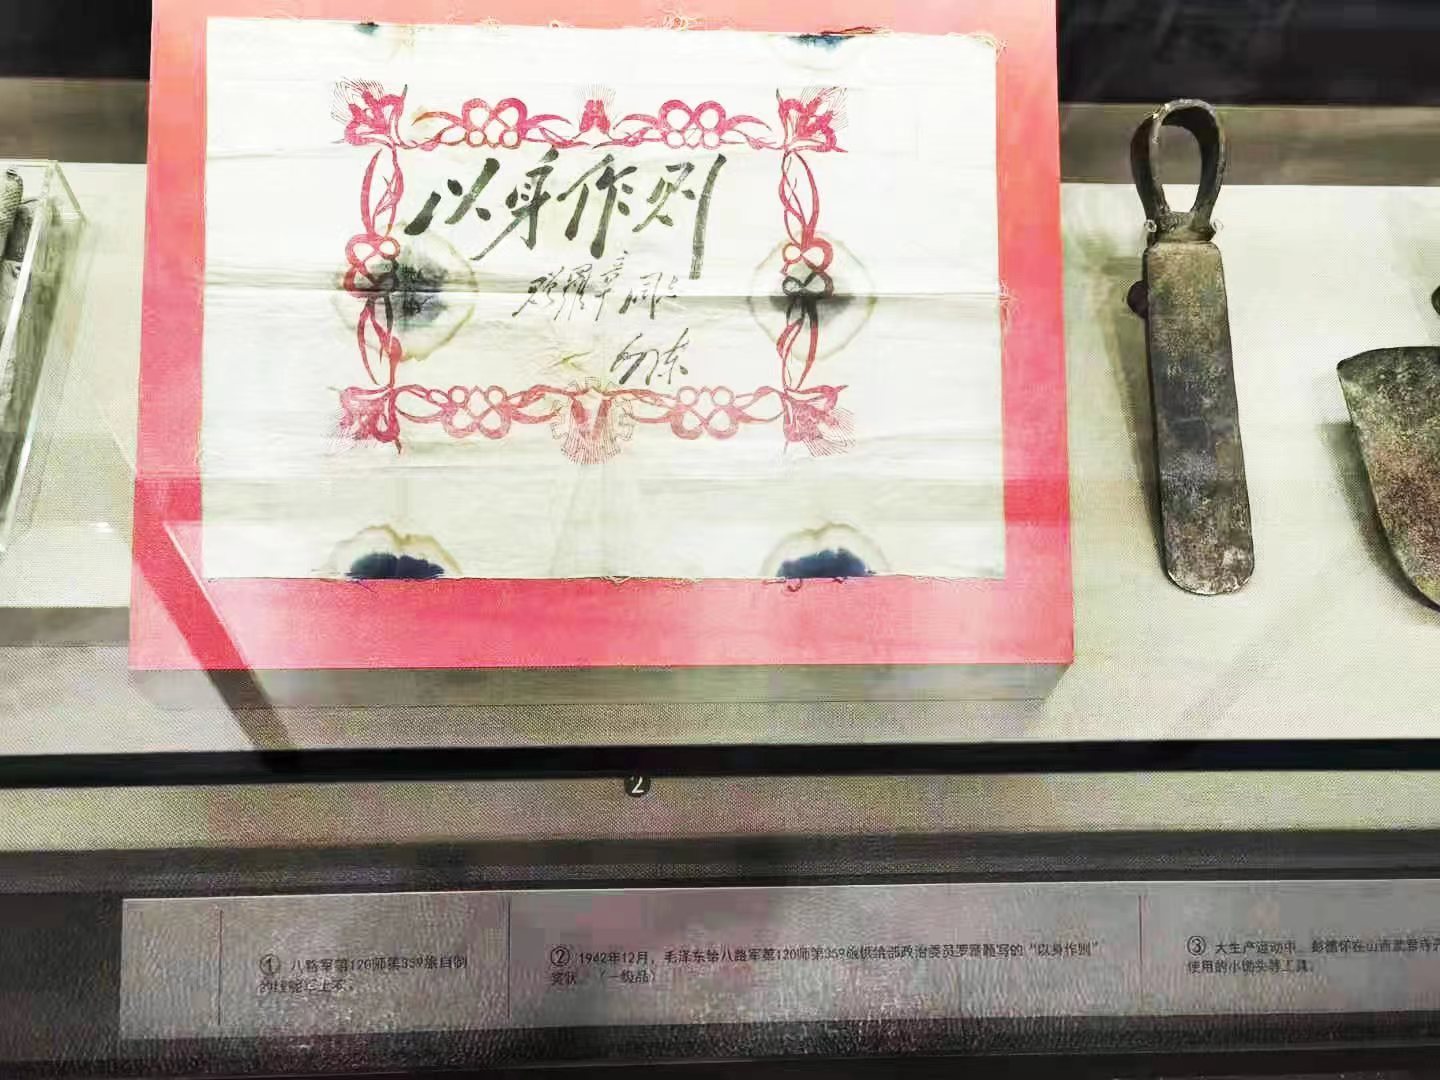 以身作则
赠罗章同志
毛泽东
2
① 八路军第120师第359旅自制
② 1942年12月，毛泽东给八路军第120师第359旅供给部政治委员罗章题写的“以身作则”
奖状。（一级品）
③ 大生产运动中，彭德怀在山西武乡
使用的小镢头等工具。